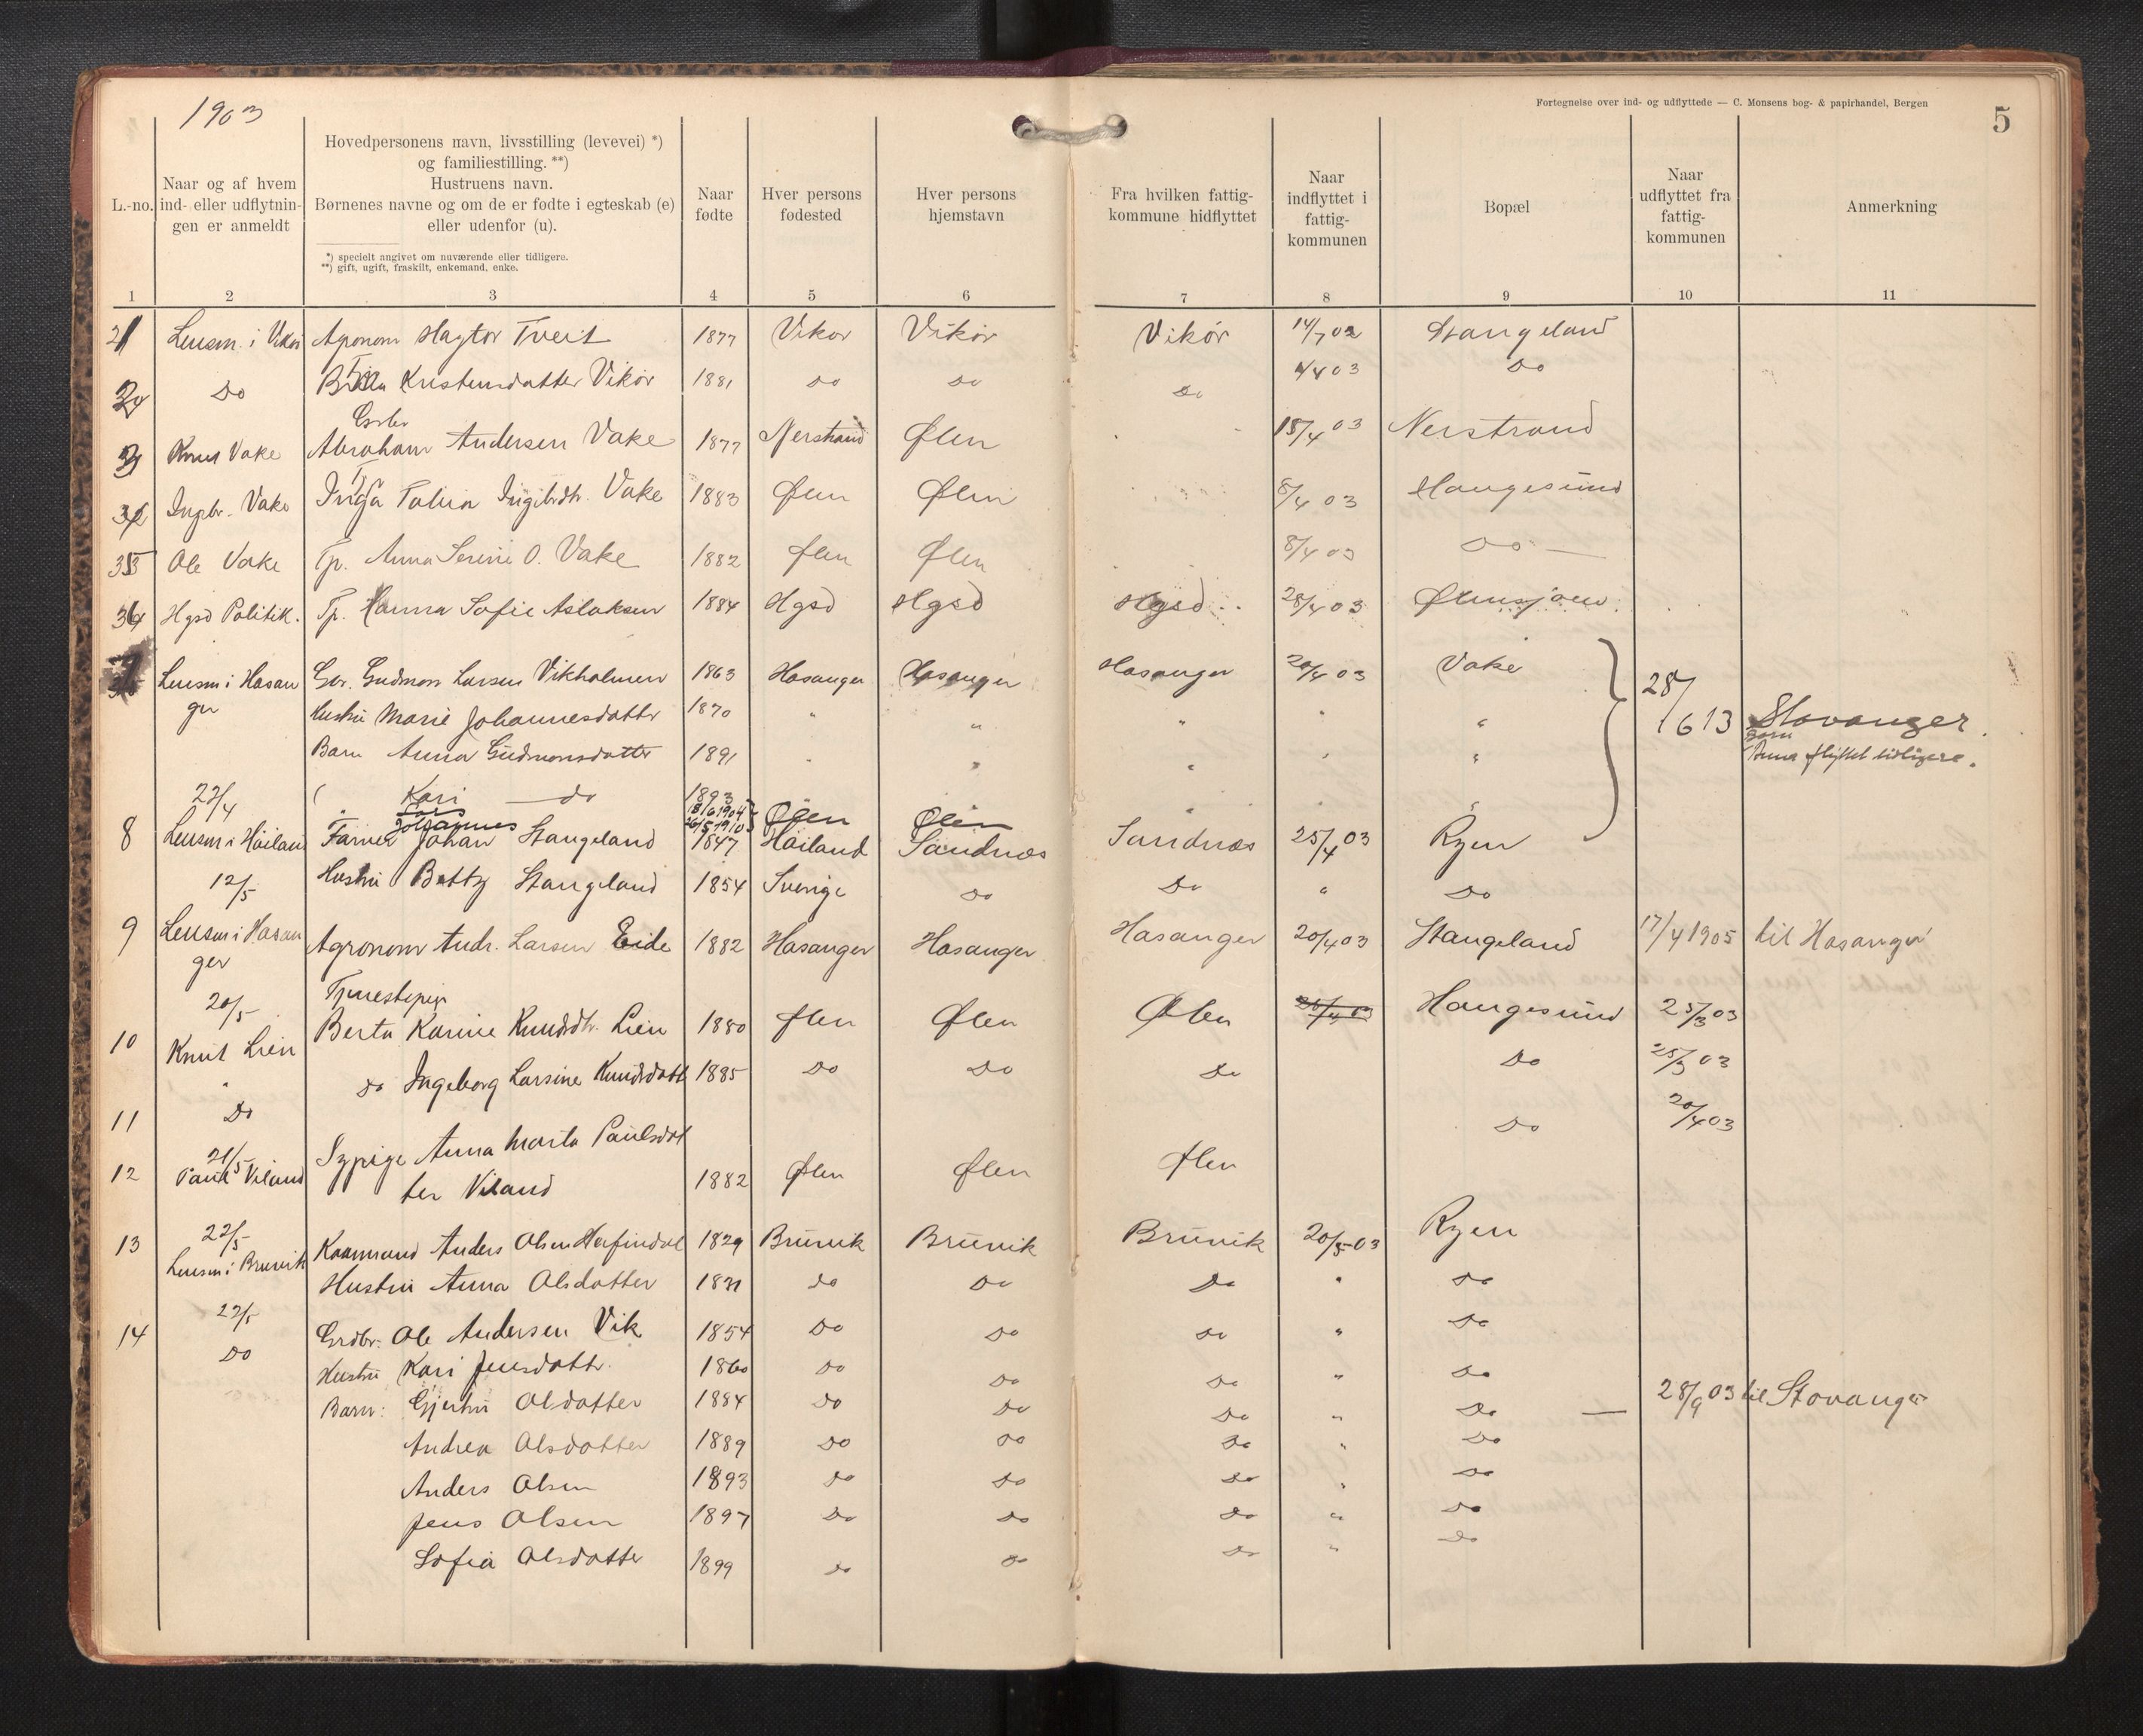 1903
Fortegnelse over ind- og udflyttede — C. Monsens bog- & papirhandel, Bergen
5
L.-no.
Naar og af hvem
ind- eller udflytnin-
gen er anmeldt
Hovedpersonens navn, livsstilling (levevei) *)
og familiestilling. **)
Hustruens navn.
Børnenes navne og om de er fødte i egteskab (e)
eller udenfor (u).
*) specielt angivet om nuværende eller tidligere.
**) gift, ugift, fraskilt, enkemand, enke.
Naar
fødte
Hver persons
fødested
Hver persons
hjemstavn
Fra hvilken fattig-
kommune hidflyttet
Naar
indflyttet i
fattig-
kommunen
Bopæl
Naar
udflyttet fra
fattig-
kommunen
Anmerkning
1 2 3 4 5 6 7 8 9 10 11
Lensm. i Vikør Agronom Tveit 1877 Vikør Vikør Vikør 14/7 02 Stangeland
Do Kristensdatter Vikør 1881 Do Do Do 03 Do
Knut Vake Abraham Andersen Vake 1877 Nerstrand Ølen 15/4 03 Nerstrand
Ingbr. Vake Inga Talia Ingibrdtr. Vake 1883 Ølen Ølen 8/4 03 Haugesund
Ole Vake Tp. Anna Serine O. Vake 1882 Ølen Ølen 8/4 03 Do
Hgsd Politik. Tp. Hanna Sofie Aslaksen 1884 Hgsd Hgsd Hgsd 28/4 03 Ølensjøen
Lensm i Hosan Gudmon Larsen Vikholmen 1863 Hosanger Hosanger Hosanger 20/4 03 Vake 28/
ger Hustru Marie Johannesdattr 1870 " " " " " 6 13 Stavanger.
Barn Anna Gudmonsdatter 1891 Barn
Anna flyttet tidligere.
22/4 Kari — do 1893
Lars 18/6 1904 Ølen Ølen
Johannes
8 Lensm i Høiland Farver Johan Stangeland 1847 Høiland Sandnæs Sandnæs 25/4 03 Ryen
12/5 Hustru Betty Stangeland 1854 Sverige Do Do " Do
9 Lensm i Hosan Agronom Andr. Larsen Eide 1882 Hosanger Hosanger Hosanger 20/4 03 Stangeland 17/4 1905 til Hosanger
ger
20/5 Tjenestepige
10 Knut Lien Berta Karine Knudsdtr. Lien 1880 Ølen Ølen Ølen Haugesund 25/3 03
" do Ingeborg Larsine Knudsdatt 1885 Do Do Do Do 25/3 03
11 Do Do 20/4 03
21/5 Sypige Anna Marta Paulsdat
12 Paul Viland ter Viland 1882 Ølen Ølen Ølen
22/5
13 Lensm i Bruvik Kaarmand Anders Olsen Herfindal 1829 Bruvik Bruvik Bruvik 20/5 03 Ryen
Hustru Anna Olsdatter do Do Do " Do
22/5
14 Do Grdbr. Ole Andersen Vik 1854 Do Do Do " Do
Hustru Kari Jensdattr. 1860 Do Do Do " Do
Barn: Gjertru Olsdatter 1884 Do Do Do " Do — 28/9 03 til Stavanger
Andrea Olsdatter 1889 Do Do Do " Do
Anders Olsen 1893 Do Do Do " Do
Jens Olsen 1897 Do Do Do " Do
Sofia Olsdatter 1899 Do Do Do " Do